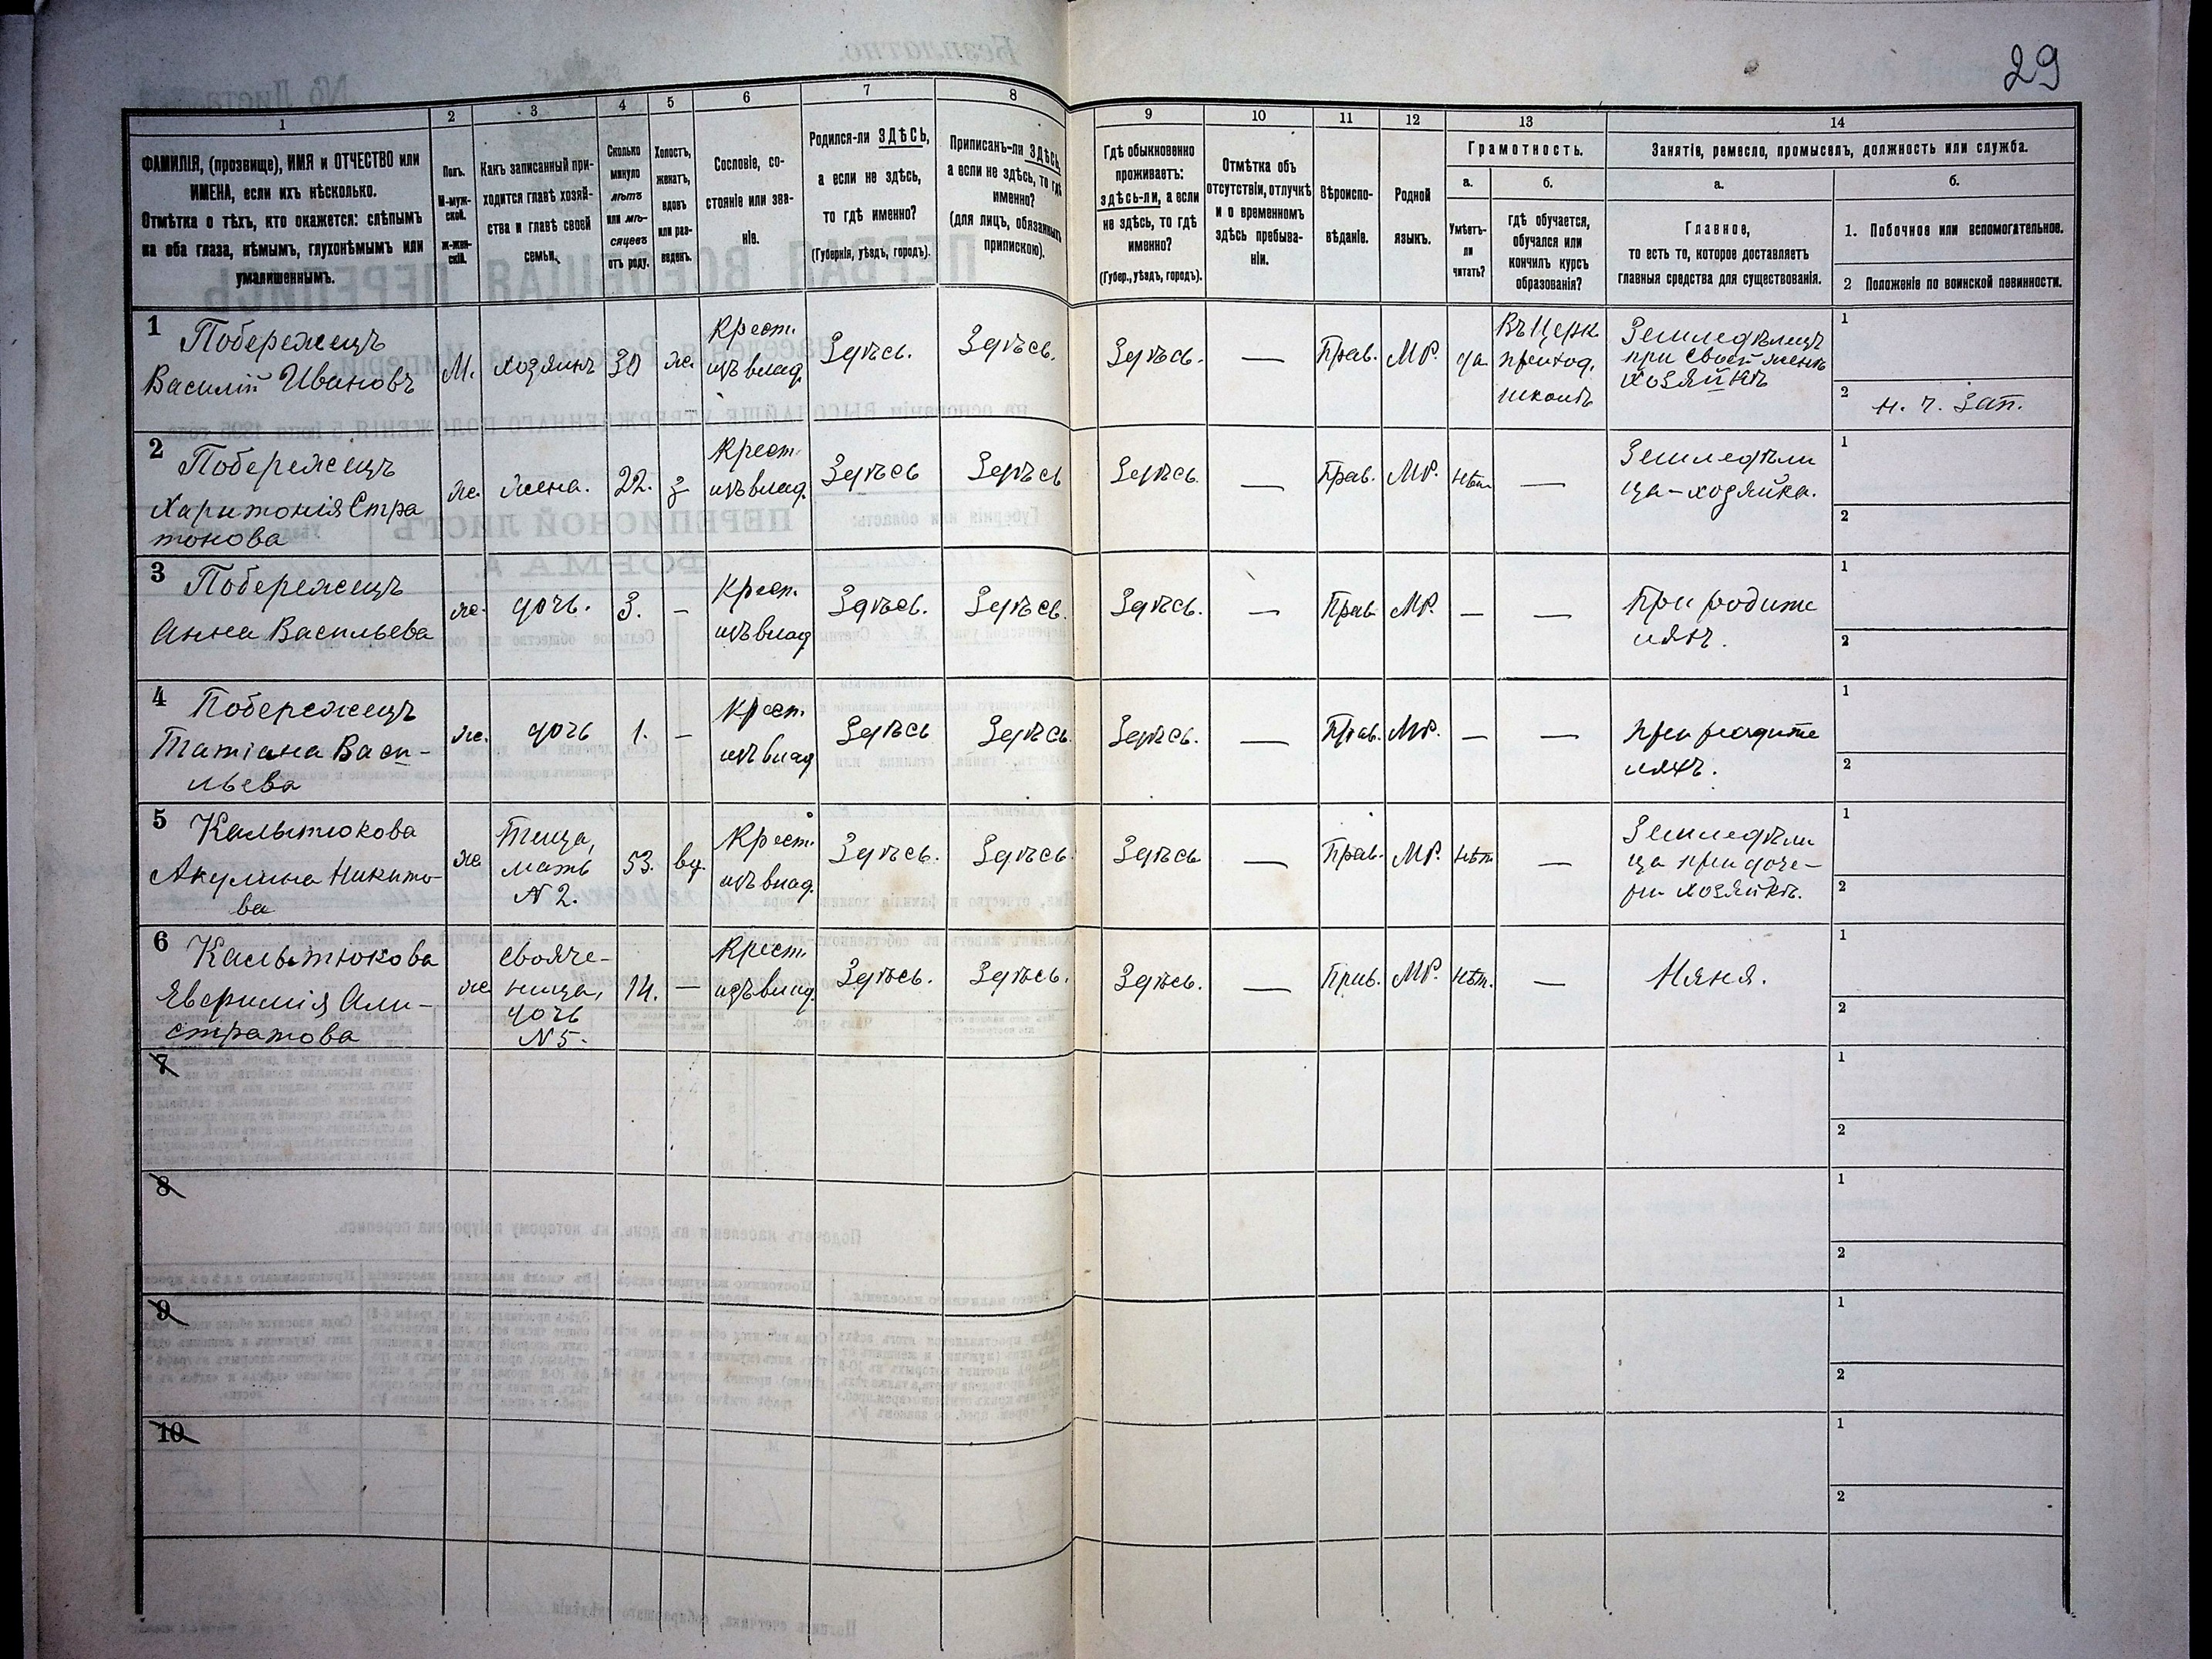 29
1
2
3
4
5
6
7
8
9
10
11
12
13
14
ФАМИЛІЯ, (прозвище), ИМЯ и ОТЧЕСТВО или
ИМЕНА, если ихъ нѣсколько.
Отмѣтка о тѣхъ, кто окажется: слѣпымъ
на оба глаза, нѣмымъ, глухонѣмымъ или
умалишеннымъ.
Полъ.
М-муж-
ской.
Ж-жен-
скій.
Какъ записанный при-
ходится главѣ хозяй-
ства и главѣ своей
семьи.
Сколько
минуло
лѣтъ
или мѣ-
сяцевъ
отъ роду.
Холостъ,
женатъ,
вдовъ
или раз-
веденъ.
Сословіе, со-
стояніе или зва-
ніе.
Родился-ли ЗДѢСЬ,
а если не здѣсь,
то гдѣ именно?
(Губернія, уѣздъ, городъ).
Приписанъ-ли ЗДѢСЬ,
а если не здѣсь, то гдѣ
именно?
(для лицъ, обязанныхъ
припискою).
Гдѣ обыкновенно
проживаетъ:
здѣсь-ли, а если
не здѣсь, то гдѣ
именно?
(Губер., уѣздъ, городъ).
Отмѣтка объ
отсутствіи, отлучкѣ
и о временномъ
здѣсь пребыва-
ніи.
Вѣроиспо-
вѣданіе.
Родной
языкъ.
Грамотность.
а.
Умѣетъ-
ли
читать?
б.
гдѣ обучается,
обучался или
кончилъ курсъ
образованія?
Занятіе, ремесло, промыселъ, должность или служба.
а.
Главное,
то есть то, которое доставляетъ
главныя средства для существованія.
б.
1. Побочное или вспомогательное.
2 Положеніе по воинской повинности.
1 Побережецъ
Василій Ивановъ
М.
хозяинъ
30
ж.
Крест.
изъ влад.
Здѣсь.
Здѣсь.
Здѣсь.
—
Прав.
МР.
да
Въ Церк
приход.
школѣ
Земледѣлецъ
при своей женѣ
хозяйкѣ
1
2 н. ч. зап.
2 Побережецъ
Харитонія Стра
тонова
ж.
жена.
22.
з
Крест.
изъ влад.
Здѣсь
Здѣсь
Здѣсь.
—
Прав.
МР.
нѣт
—
Земледѣли
ца-хозяйка.
1
2
3 Побережецъ
Анна Васильева
ж.
дочь.
3.
-
Крест.
изъ влад
Здѣсь.
Здѣсь.
Здѣсь.
—
Прав
МР.
—
—
При родите
ляхъ.
1
2
4 Побережецъ
Татіана Васи-
льева
ж.
дочь
1.
-
Крест.
изъ влад
Здѣсь
Здѣсь.
Здѣсь.
—
Прав.
МР.
—
—
При родите
ляхъ.
1
2
5
Акулина Никито-
ва
ж
Теща,
мать
N 2.
53.
вд.
Крест.
изъ влад.
Здѣсь.
Здѣсь.
Здѣсь
—
Прав.
МР.
нѣт
—
Земледѣли
ца при доче-
ри хозяйкѣ.
1
2
6
страт‌ова
ж
своячe-
ница,
дочь
N 5.
14.
—
Крест.
изъ влад.
Здѣсь.
Здѣсь.
Здѣсь.
—
Прав.
МР.
нѣт.
—
Няня.
1
2
7
1
2
8
1
2
9
1
2
10
1
2